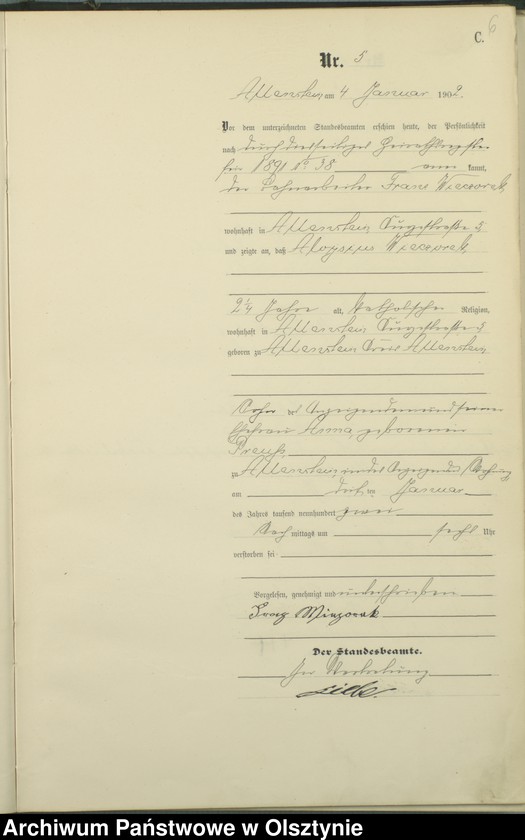 C. 6
Nr. 5
Allenstein, am 4 Januar 1902.
Vor dem unterzeichneten Standesbeamten erschien heute, der Persönlichkeit
nach durch diesseitiges Heirathsregister
1891 No 58 kannt,
der Bahnarbeiter Franz Wieczorek,
wohnhaft in Allenstein,
und zeigte an, daß Aloysius Wieczorek,
2 1/4 Jahre alt, katholischer Religion,
wohnhaft in Allenstein
geboren zu Allenstein, Kreis Allenstein,
Sohn des Anzeigenden und seiner
Ehefrau Anna, geborenen
Preuß,
zu Allenstein, in des Anzeigenden Wohnung
am dritten Januar
des Jahres tausend neunhundert zwei
Nachmittags um sechs Uhr
verstorben sei.
Vorgelesen, genehmigt und unterschrieben
Franz Wieczorek
Der Standesbeamte.
In Vertretung
Archiwum Państwowe w Olsztynie